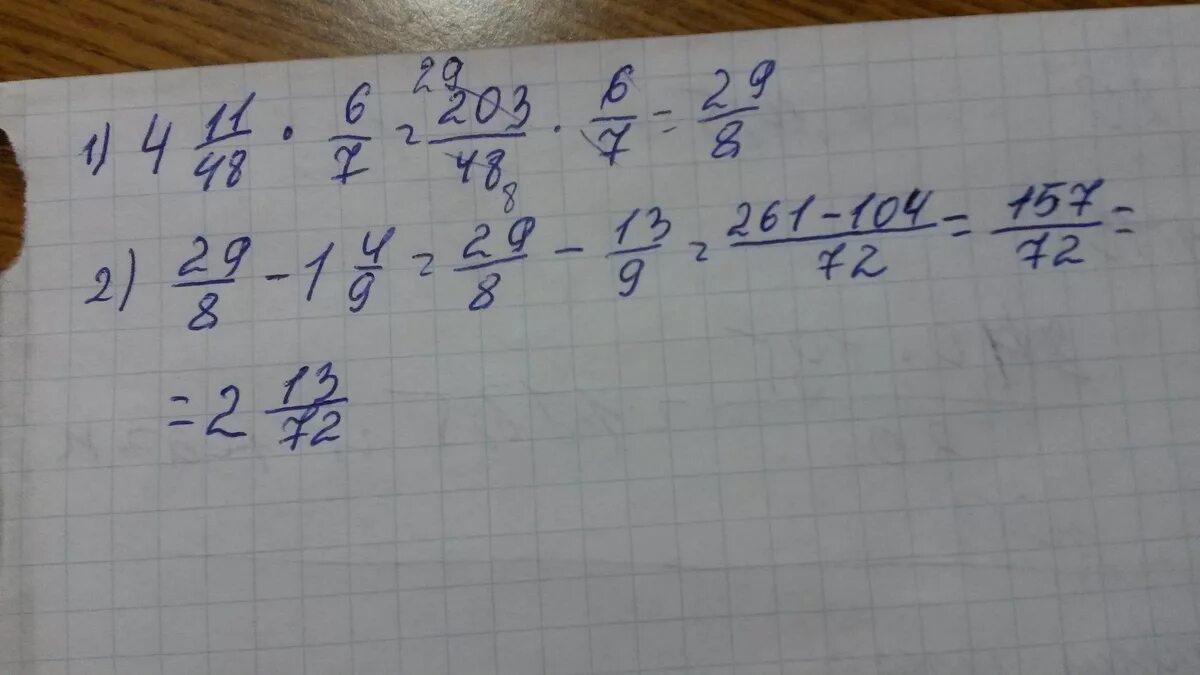 1) 4 11/48 · 6/7 = 29 203/48 8 · 6/7 = 29/8
2) 29/8 - 1 4/9 = 29/8 - 13/9 = 261-104/72 = 157/72 =
= 2 13/72